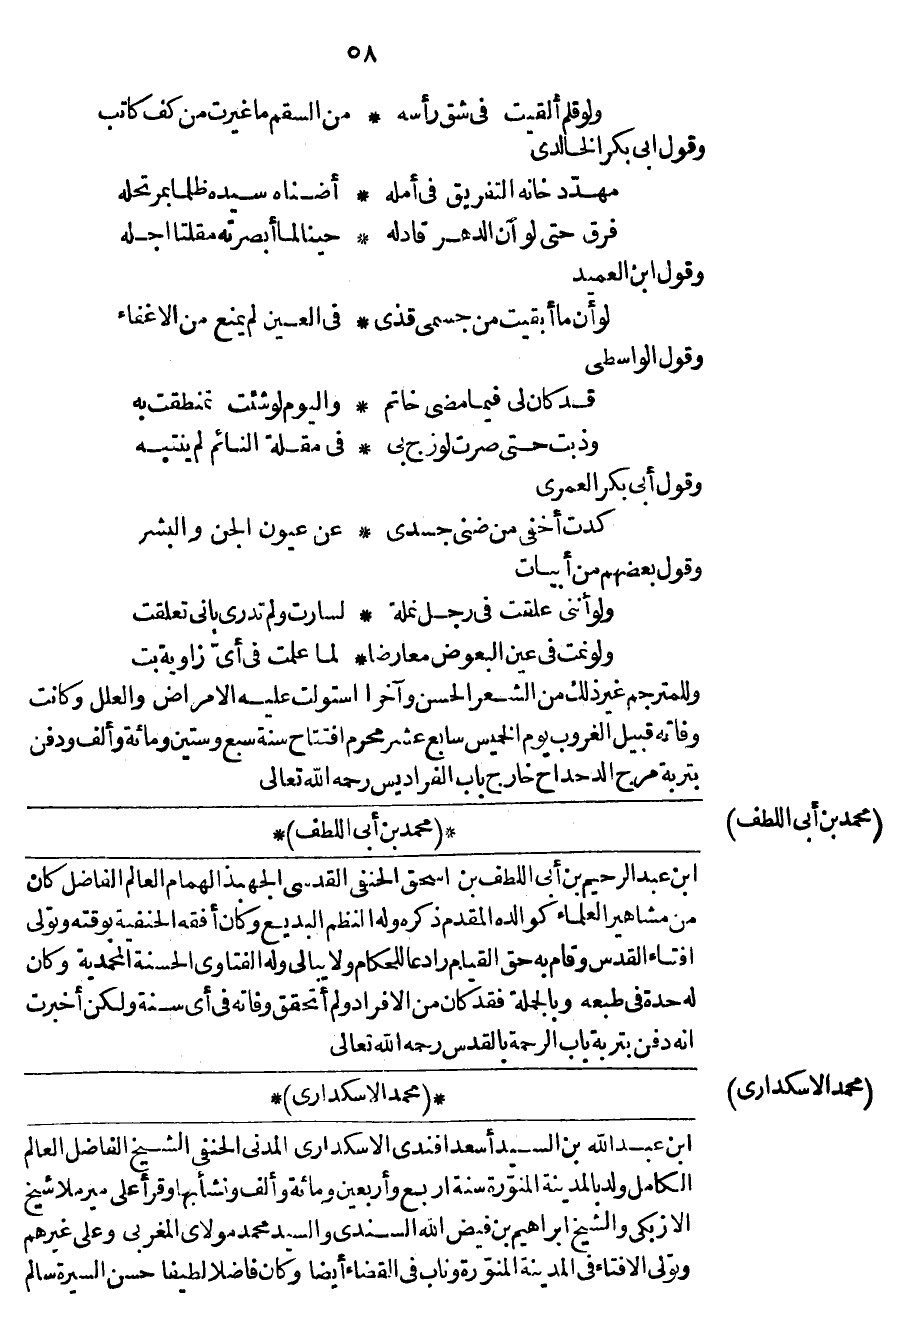 ٥٨
ولو قلم ألقيت فى شق رأسه * من السقم ما غيرت من كف كاتب
وقول ابى بكر الخالدى
مهدّد خانه التفريق فى أمله * أضناه سيده ظلما بمرتحله
فرق حتى لو آن الدهر قادله * حينا لما أبصرته مقلتا اجله
وقول ابن العميد
لو أن ما أبقيت من جسمى قذى * فى العين لم يمنع من الاغفاء
وقول الواسطى
قد كان لى فيما مضى خاتم * واليوم لو شئت تمنطقت به
وذبت حتى صرت لو زج بى * فى مقلة النائم لم ينتبه
وقول أبى بكر العمرى
كدت أخفى من ضنى جسدى * عن عيون الجن والبشر
وقول بعضهم من أبيات
ولو أننى علقت فى رجل نملة * لسارت ولم تدرى بانى تعلقت
ولو نمت فى عين البعوض معارضا * لما علمت فى أىّ زاوية بت
وللمترجم غير ذلك من الشعر الحسن وآخرا استولت عليه الامراض والعلل وكانت
وفاته قبيل الغروب يوم الخميس سابع عشر محرم افتتاح سنة سبع وستين ومائة وألف ودفن
بتربة مرج الدحداح خارج باب الفراديس رحمه الله تعالى
(محمد بن أبى اللطف)
*(محمد بن أبى اللطف)*
ابن عبد الرحيم بن أبى اللطف بن اسحق الحنفى القدسى الجهبذ الهمام العالم الفاضل كان
من مشاهير العلماء كوالده المقدم ذكره وله النظم البديع وكان أفقه الحنفية بوقته وتولى
افتاء القدس وقام به حق القيام رادعا للحكام ولا يبالى وله الفتاوى الحسنة المحمدية وكان
له حدة فى طبعه وبالجملة فقد كان من الافراد ولم أتحقق وفاته فى أى سنة ولكن أخبرت
انه دفن بتربة باب الرحمة بالقدس رحمه الله تعالى
(محمد الاسكدارى)
*(محمد الاسكدارى)*
ابن عبد الله بن السيد أسعد افندى الاسكدارى المدنى الحنفى الشيخ الفاضل العالم
الكامل ولد بالمدينة المنوّرة سنة اربع وأربعين ومائة وألف ونشأ بها وقرأ على مير ملا شيخ
الازبكى والشيخ ابراهيم بن فيض الله السندى والسيد محمد مولاى المغربى وعلى غيرهم
وتولى الافتاء فى المدينة المنوّرة وناب فى القضاء أيضا وكان فاضلا لطيفا حسن السيرة سالم